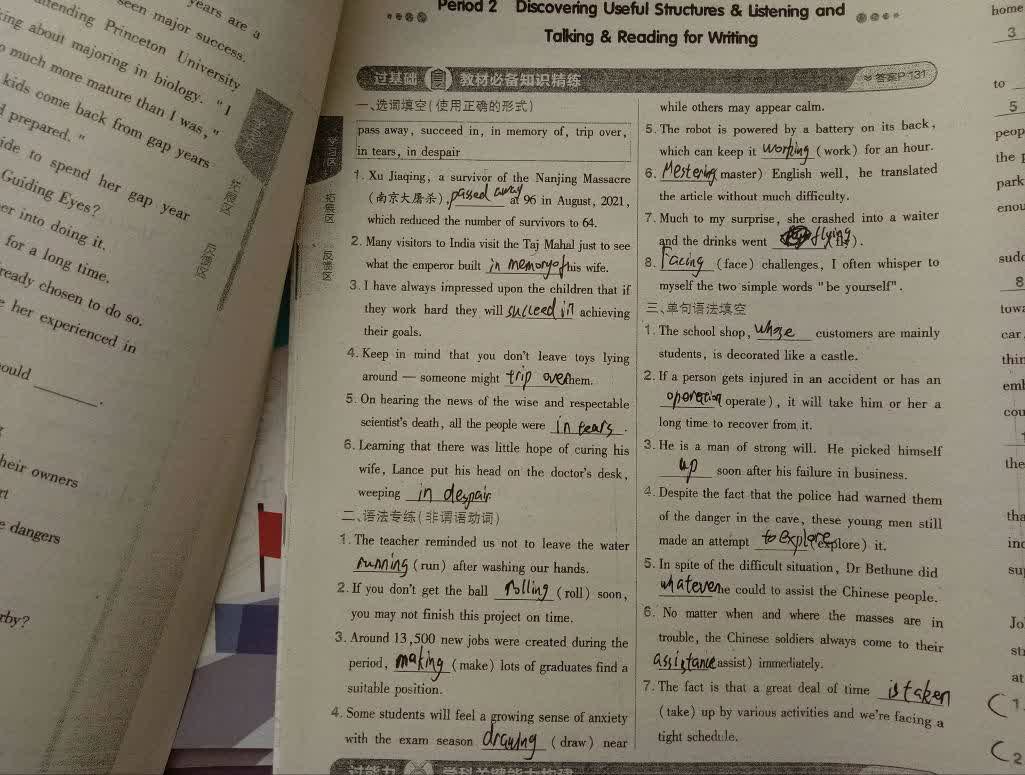 years are a
seen major success.
tending Princeton University
ing about majoring in biology. "I
much more mature than I was,"
kids come back from gap years
prepared."
ide to spend her gap year
Guiding Eyes?
er into doing it.
for a long time.
ready chosen to do so.
e her experienced in
ould ______.
heir owners
rt
e dangers
rby?
学习区
拓展区
反馈区
Period 2 Discovering Useful Structures & Listening and
Talking & Reading for Writing
过基础 教材必备知识精练 答案P131
一、选词填空(使用正确的形式)
pass away, succeed in, in memory of, trip over,
in tears, in despair
1. Xu Jiaqing, a survivor of the Nanjing Massacre
(南京大屠杀), passed away at 96 in August, 2021,
which reduced the number of survivors to 64.
2. Many visitors to India visit the Taj Mahal just to see
what the emperor built in memory of his wife.
3. I have always impressed upon the children that if
they work hard they will succeed in achieving
their goals.
4. Keep in mind that you don't leave toys lying
around — someone might trip over them.
5. On hearing the news of the wise and respectable
scientist's death, all the people were in tears.
6. Learning that there was little hope of curing his
wife, Lance put his head on the doctor's desk,
weeping in despair
二、语法专练(非谓语动词)
1. The teacher reminded us not to leave the water
running (run) after washing our hands.
2. If you don't get the ball rolling (roll) soon,
you may not finish this project on time.
3. Around 13,500 new jobs were created during the
period, making (make) lots of graduates find a
suitable position.
4. Some students will feel a growing sense of anxiety
with the exam season drawing (draw) near
while others may appear calm.
5. The robot is powered by a battery on its back,
which can keep it working (work) for an hour.
6. Mestering (master) English well, he translated
the article without much difficulty.
7. Much to my surprise, she crashed into a waiter
and the drinks went flying (fly).
8. Facing (face) challenges, I often whisper to
myself the two simple words "be yourself".
三、单句语法填空
1. The school shop, whose customers are mainly
students, is decorated like a castle.
2. If a person gets injured in an accident or has an
operation (operate), it will take him or her a
long time to recover from it.
3. He is a man of strong will. He picked himself
up soon after his failure in business.
4. Despite the fact that the police had warned them
of the danger in the cave, these young men still
made an attempt to explore (explore) it.
5. In spite of the difficult situation, Dr Bethune did
whatever he could to assist the Chinese people.
6. No matter when and where the masses are in
trouble, the Chinese soldiers always come to their
assistance (assist) immediately.
7. The fact is that a great deal of time is taken
(take) up by various activities and we're facing a
tight schedule.
home
3
to
5
peop
the
park
enou
sudd
8
towa
car
thin
emb
cou
the
tha
inc
su
Jo
st
at
1
2